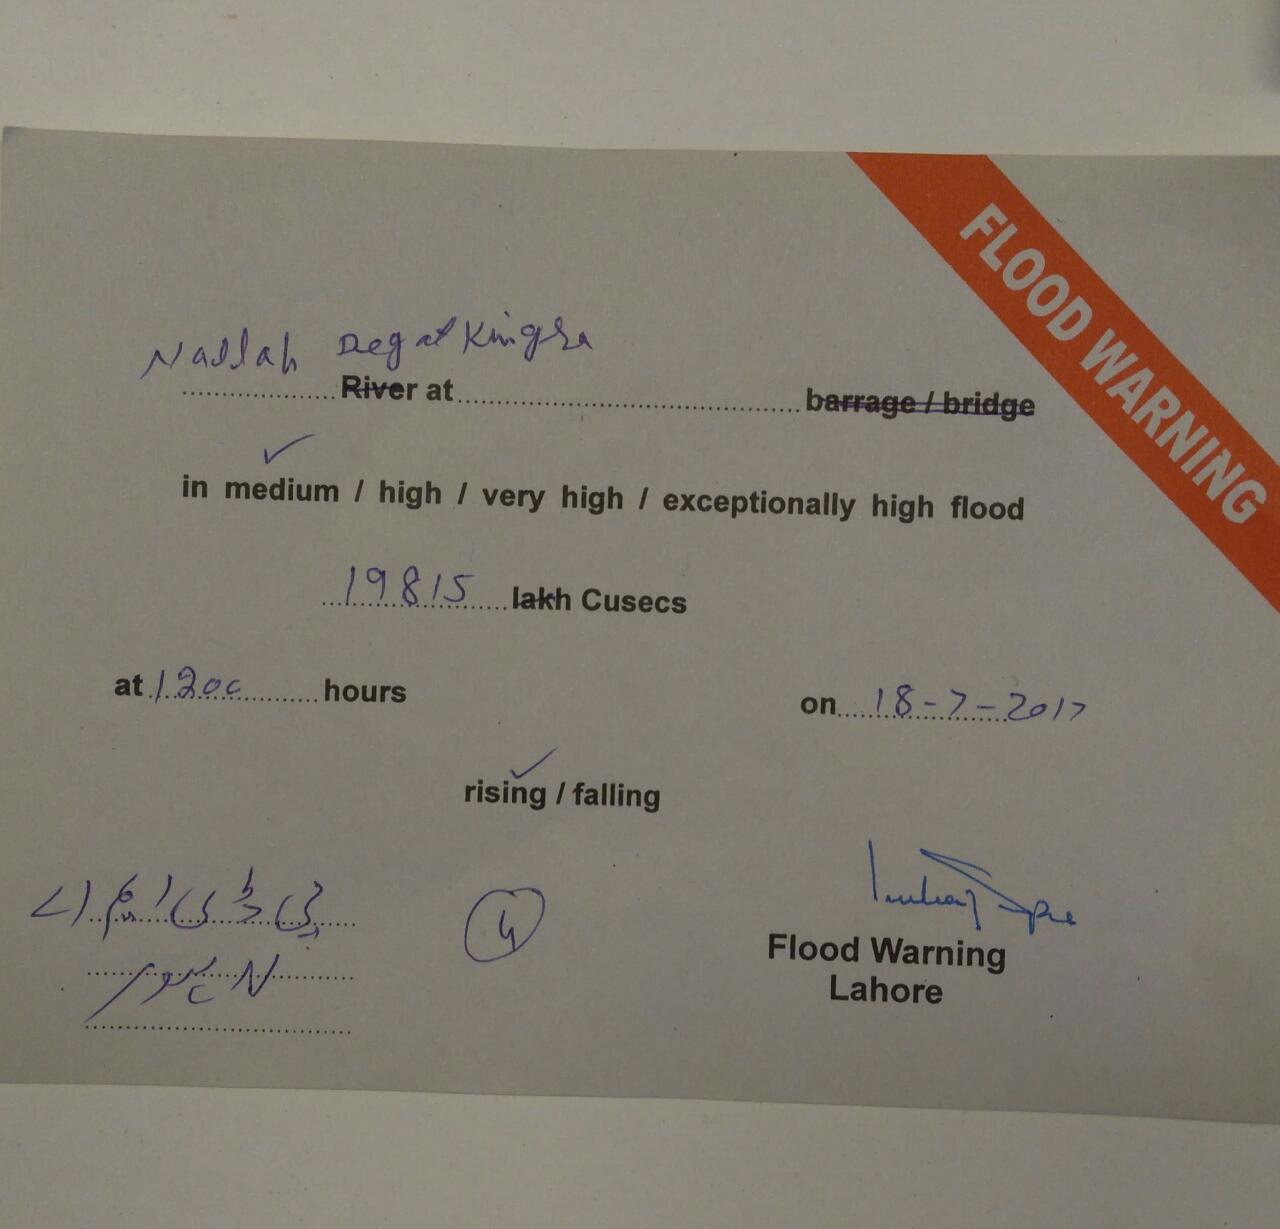 FLOOD WARNING
Nallah Deg at Kingra
River at barrage / bridge
in medium / high / very high / exceptionally high flood
19815 lakh Cusecs
at 1200 hours on 18-7-2017
rising / falling
پی ڈی ایم اے
لاہور
4
Flood Warning
Lahore